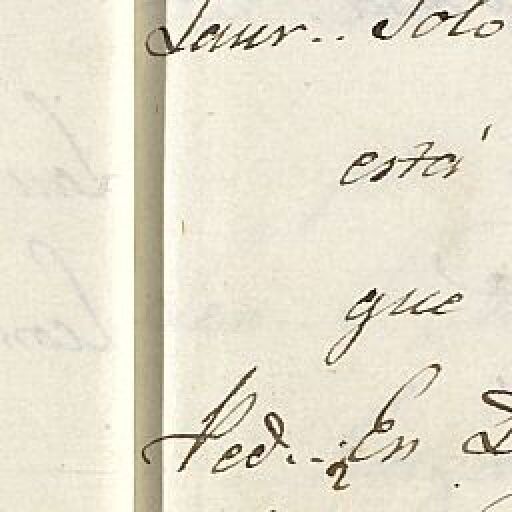 Laur.. Solo
está
que
Ped... En D
2